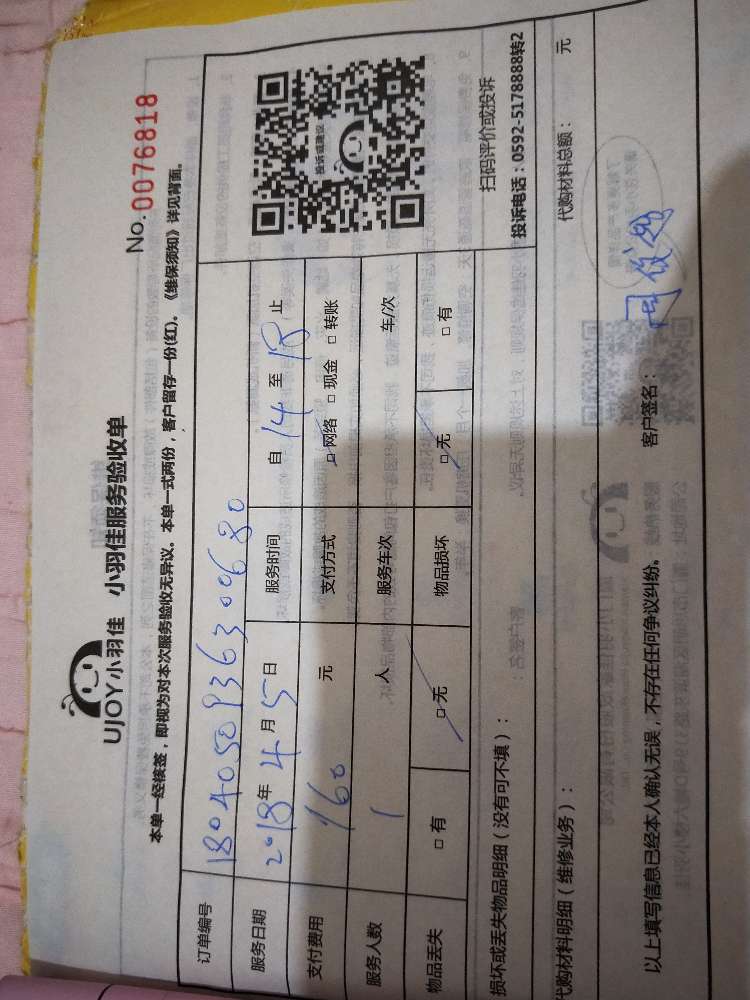 UJOY小羽佳 小羽佳服务验收单
No. 0076818
本单一经核签，即视为对本次服务验收无异议。本单一式两份，客户留存一份(红)。《维保须知》详见背面。
订单编号 1804050936300680
服务日期 2018年4月5日 服务时间 自 14 至 18 止
支付费用 160 元 支付方式 □网络 □现金 □转账
服务人数 1 人 服务车次 车/次
物品丢失 □有 □无 物品损坏 □无 □有
投诉或建议
扫码评价或投诉
投诉电话：0592-5178888转2
损坏或丢失物品明细（没有可不填）：
代购材料明细（维修业务）： 代购材料总额： 元
以上填写信息已经本人确认无误，不存在任何争议纠纷。 客户签名：